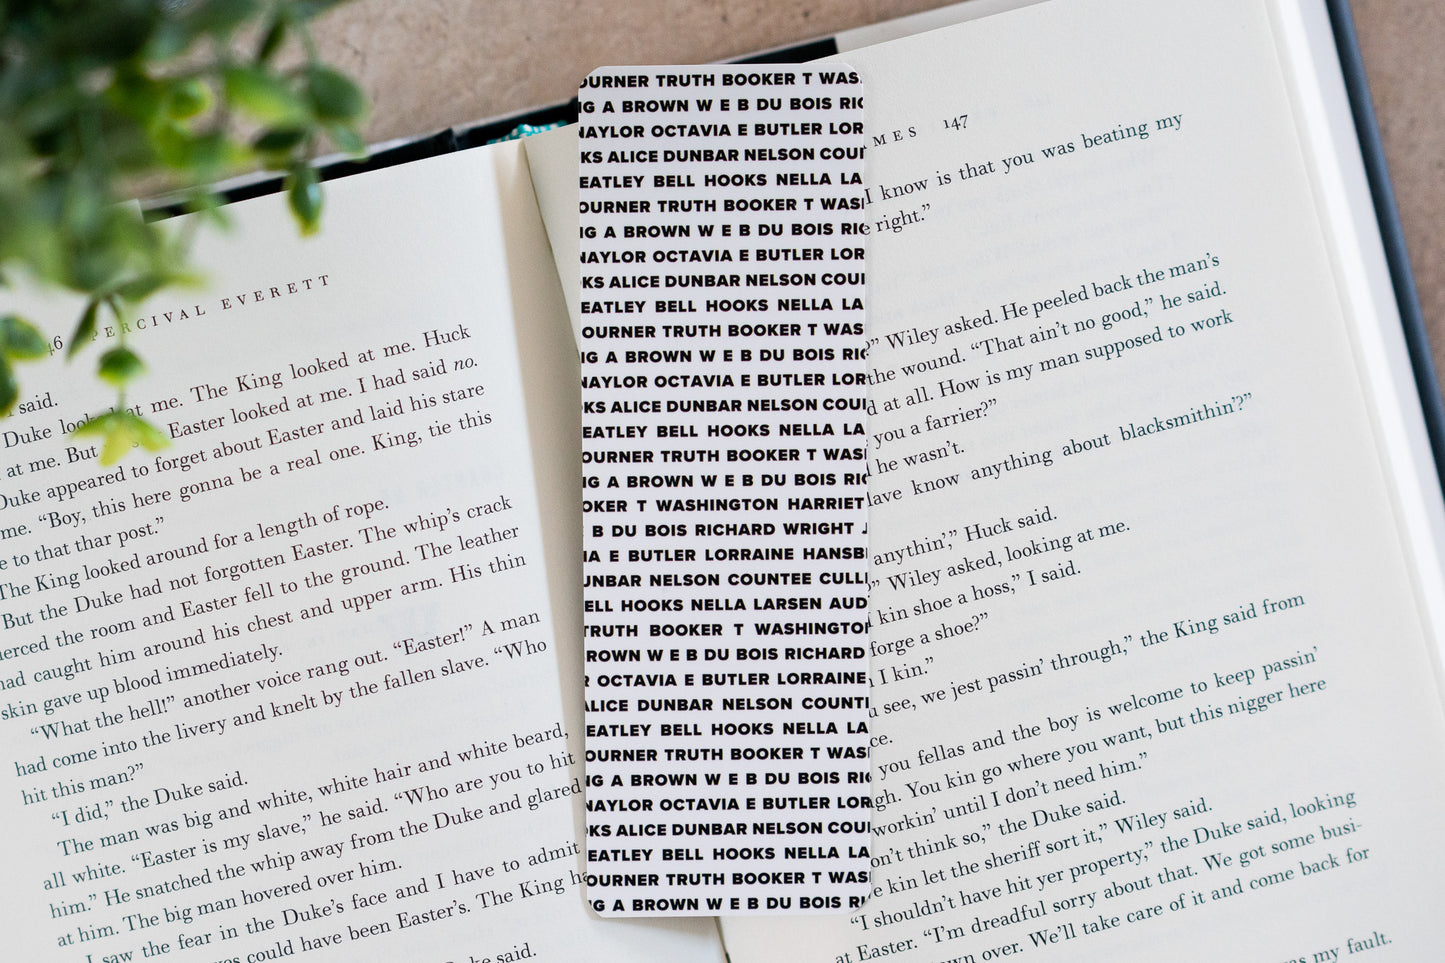 46 PERCIVAL EVERETT
said.
Duke looked at me. The King looked at me. Huck
at me. But Easter looked at me. I had said no.
Duke appeared to forget about Easter and laid his stare
me. “Boy, this here gonna be a real one. King, tie this
e to that thar post.”
The King looked around for a length of rope.
But the Duke had not forgotten Easter. The whip’s crack
ierced the room and Easter fell to the ground. The leather
had caught him around his chest and upper arm. His thin
skin gave up blood immediately.
“What the hell!” another voice rang out. “Easter!” A man
had come into the livery and knelt by the fallen slave. “Who
hit this man?”
“I did,” the Duke said.
The man was big and white, white hair and white beard,
all white. “Easter is my slave,” he said. “Who are you to hit
him.” He snatched the whip away from the Duke and glared
at him. The big man hovered over him.
I saw the fear in the Duke’s face and I have to admit
yes could have been Easter’s. The King ha
ke said.
OURNER TRUTH BOOKER T WAS
IG A BROWN W E B DU BOIS RIC
NAYLOR OCTAVIA E BUTLER LOR
KS ALICE DUNBAR NELSON COUN
EATLEY BELL HOOKS NELLA LA
OURNER TRUTH BOOKER T WASI
IG A BROWN W E B DU BOIS RIC
NAYLOR OCTAVIA E BUTLER LOR
KS ALICE DUNBAR NELSON COUI
EATLEY BELL HOOKS NELLA LA
OURNER TRUTH BOOKER T WAS
IG A BROWN W E B DU BOIS RIC
NAYLOR OCTAVIA E BUTLER LOR
KS ALICE DUNBAR NELSON COUI
EATLEY BELL HOOKS NELLA LA
OURNER TRUTH BOOKER T WASI
IG A BROWN W E B DU BOIS RIC
OKER T WASHINGTON HARRIET
B DU BOIS RICHARD WRIGHT J
IA E BUTLER LORRAINE HANSB
UNBAR NELSON COUNTEE CULLI
ELL HOOKS NELLA LARSEN AUD
TRUTH BOOKER T WASHINGTON
ROWN W E B DU BOIS RICHARD
R OCTAVIA E BUTLER LORRAINE
ALICE DUNBAR NELSON COUNTI
EATLEY BELL HOOKS NELLA LA
OURNER TRUTH BOOKER T WASI
NG A BROWN W E B DU BOIS RIC
NAYLOR OCTAVIA E BUTLER LOR
KS ALICE DUNBAR NELSON COUI
EATLEY BELL HOOKS NELLA LA
OURNER TRUTH BOOKER T WAS
NG A BROWN W E B DU BOIS RI
MES 147
I know is that you was beating my
e right.”
?” Wiley asked. He peeled back the man’s
the wound. “That ain’t no good,” he said.
d at all. How is my man supposed to work
you a farrier?”
he wasn’t.
lave know anything about blacksmithin’?”
anythin’,” Huck said.
” Wiley asked, looking at me.
kin shoe a hoss,” I said.
forge a shoe?”
I kin.”
u see, we jest passin’ through,” the King said from
ce.
you fellas and the boy is welcome to keep passin’
gh. You kin go where you want, but this nigger here
workin’ until I don’t need him.”
on’t think so,” the Duke said.
e kin let the sheriff sort it,” Wiley said.
“I shouldn’t have hit yer property,” the Duke said, looking
at Easter. “I’m dreadful sorry about that. We got some busi-
wn over. We’ll take care of it and come back for
as my fault.